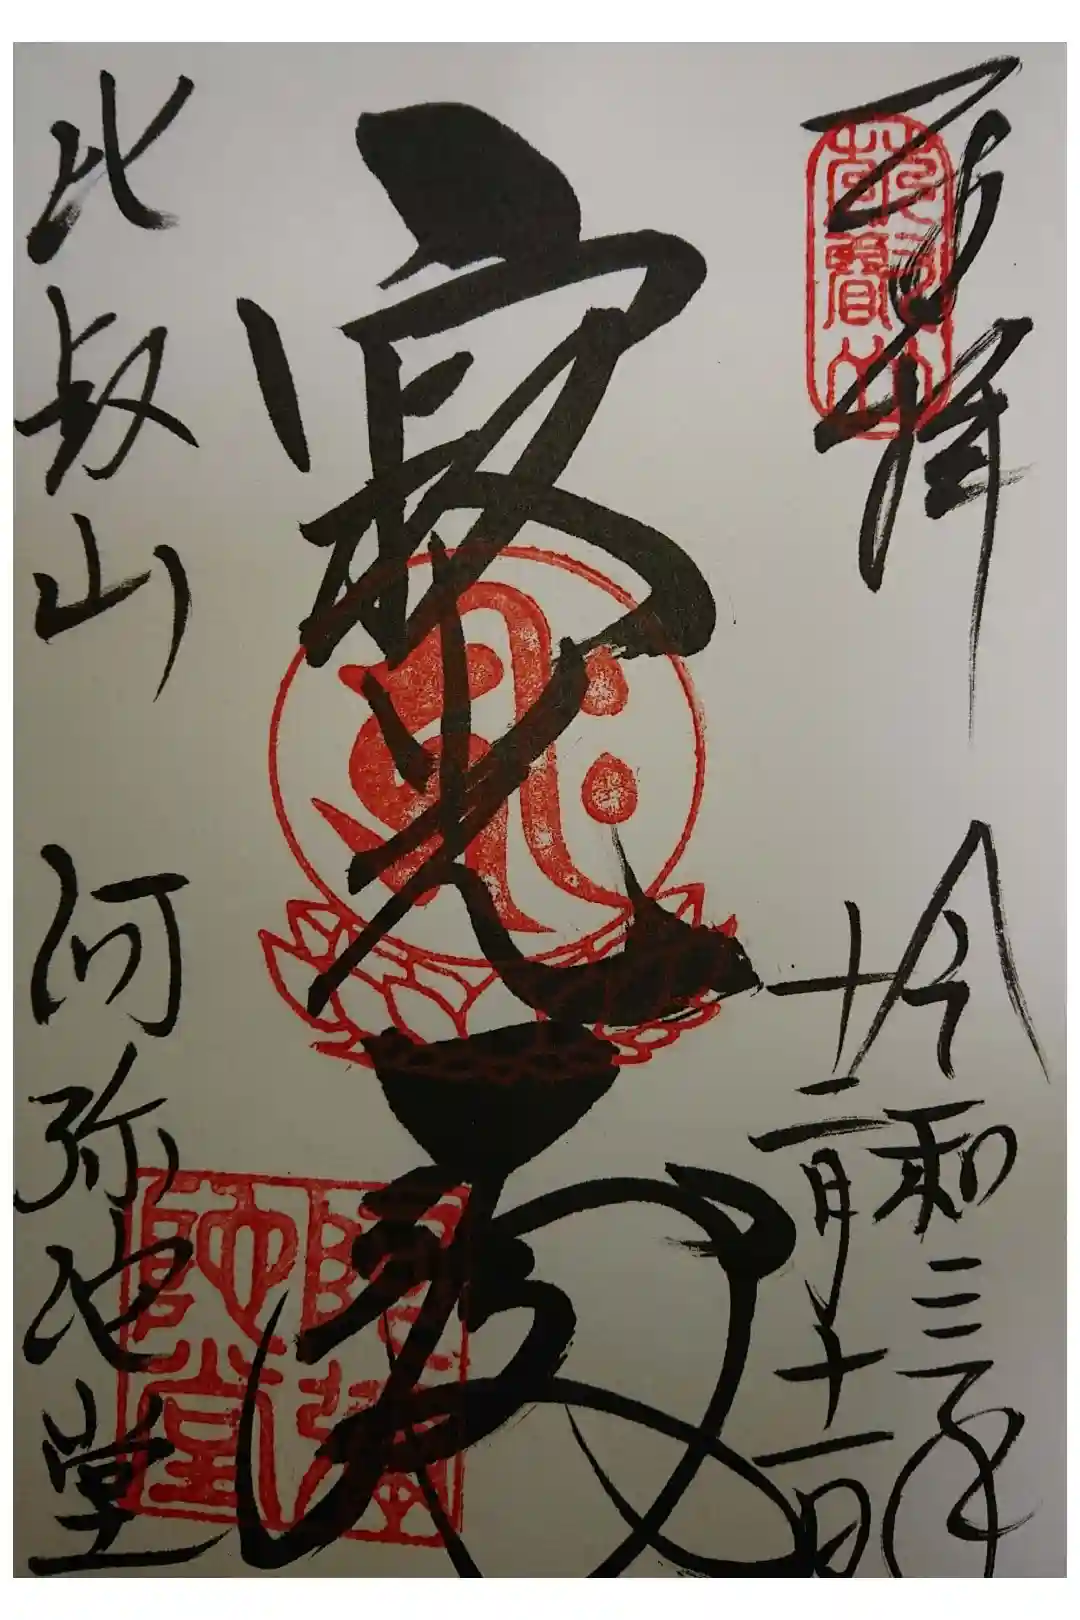 奉拝
令和三年
十二月十一日
寂光
比叡山 阿弥陀堂
阿弥
陀堂